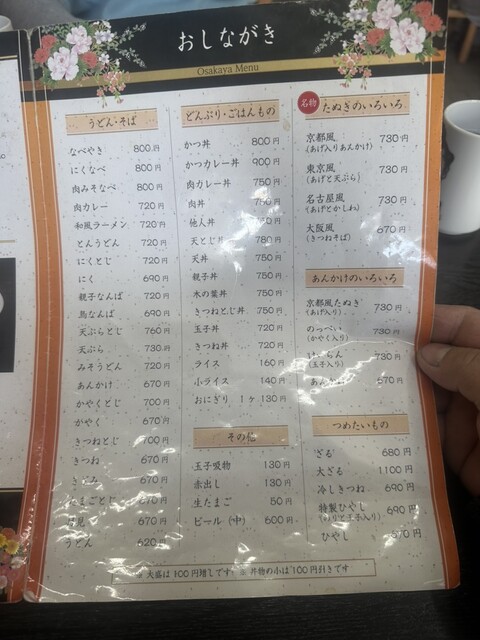 おしながき
Osakaya Menu
うどん・そば
なべやき 800円
にくなべ 800円
肉みそなべ 800円
肉カレー 720円
和風ラーメン 720円
とんうどん 720円
にくとじ 720円
にく 690円
親子なんば 720円
鳥なんば 690円
天ぷらとじ 760円
天ぷら 730円
みそうどん 720円
あんかけ 670円
かやくとじ 700円
かやく 670円
きつねとじ 700円
きつね 670円
きざみ 670円
たまごとじ 670円
月見 670円
うどん 620円
どんぶり・ごはんもの
かつ丼 800円
かつカレー丼 900円
肉カレー丼 750円
肉丼 750円
他人丼 750円
天とじ丼 780円
天丼 750円
親子丼 750円
木の葉丼 750円
きつねとじ丼 750円
玉子丼 720円
きつね丼 720円
ライス 160円
小ライス 140円
おにぎり 1ヶ 130円
その他
玉子吸物 130円
赤出し 130円
生たまご 50円
ビール（中） 600円
名物
たぬきのいろいろ
京都風 730円
（あげ入りあんかけ）
東京風 730円
（あげと天ぷら）
名古屋風 730円
（あげとかしわ）
大阪風 670円
（きつねそば）
あんかけのいろいろ
京都風たぬき 730円
（あげ入り）
のっぺい 730円
（かやく入り）
らん 730円
（玉子入り）
あんかけ 670円
つめたいもの
ざる 680円
大ざる 1100円
冷しきつね 690円
特製ひやし 690円
（のりと玉子入り）
ひやし 670円
※大盛は100円増しです ※丼物の小は100円引きです